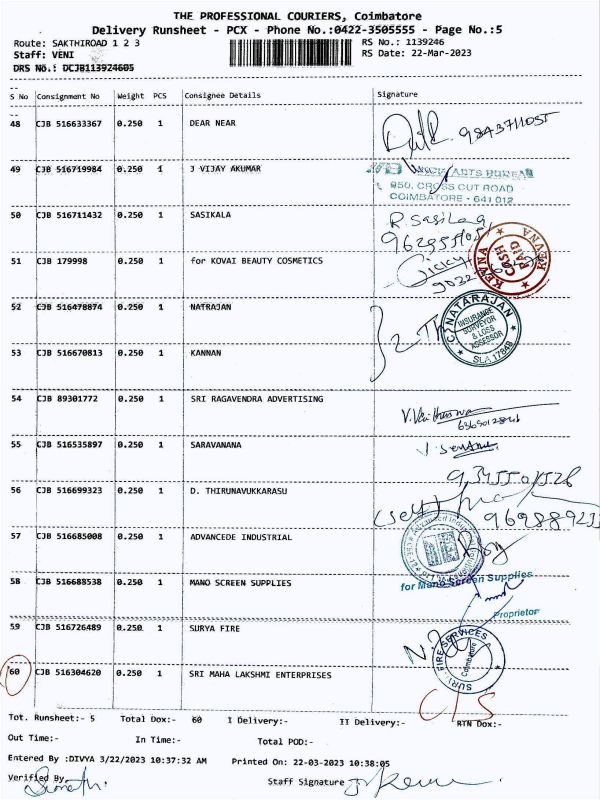 THE PROFESSIONAL COURIERS, Coimbatore
Delivery Runsheet - PCX - Phone No.:0422-3505555 - Page No.:5
Route: SAKTHIROAD 1 2 3 RS No.: 1139246
Staff: VENI RS Date: 22-Mar-2023
DRS No.: DCJB113924605
S No Consignment No Weight PCS Consignee Details Signature
48 CJB 516633367 0.250 1 DEAR NEAR 9843711055
49 CJB 516719984 0.250 1 J VIJAY AKUMAR
ARTS BUREAU
950, CROSS CUT ROAD
COIMBATORE - 641 012
50 CJB 516711432 0.250 1 SASIKALA
51 CJB 179998 0.250 1 for KOVAI BEAUTY COSMETICS
KEVNA CASH PAID KEVNA
52 CJB 516478874 0.250 1 NATRAJAN
C. NATARAJAN
INSURANCE
SURVEYOR
& LOSS
ASSESSOR
53 CJB 516670813 0.250 1 KANNAN
54 CJB 89301772 0.250 1 SRI RAGAVENDRA ADVERTISING
55 CJB 516535897 0.250 1 SARAVANANA
56 CJB 516699323 0.250 1 D. THIRUNAVUKKARASU
57 CJB 516685008 0.250 1 ADVANCEDE INDUSTRIAL
58 CJB 516688538 0.250 1 MANO SCREEN SUPPLIES
for Mano Screen Supplies
Proprietor
59 CJB 516726489 0.250 1 SURYA FIRE
FIRE SERVICES
Coimbatore
60 CJB 516304620 0.250 1 SRI MAHA LAKSHMI ENTERPRISES
Tot. Runsheet:- 5 Total Dox:- 60 I Delivery:- II Delivery:- RTN Dox:-
Out Time:- In Time:- Total POD:-
Entered By :DIVYA 3/22/2023 10:37:32 AM Printed On: 22-03-2023 10:38:05
Verified By Staff Signature